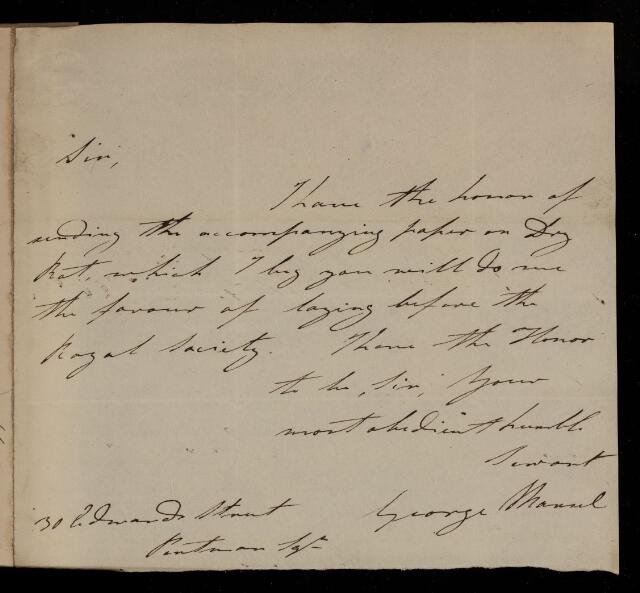 Sir,
I have the honor of
sending the accompanying paper on Dry
Rot, which I beg you will do me
the favour of laying before the
Royal Society. I have the Honor
to be, Sir, Your
most obedient humble
Servant
George Mansel
30 Edwards Street
Portman Sqr